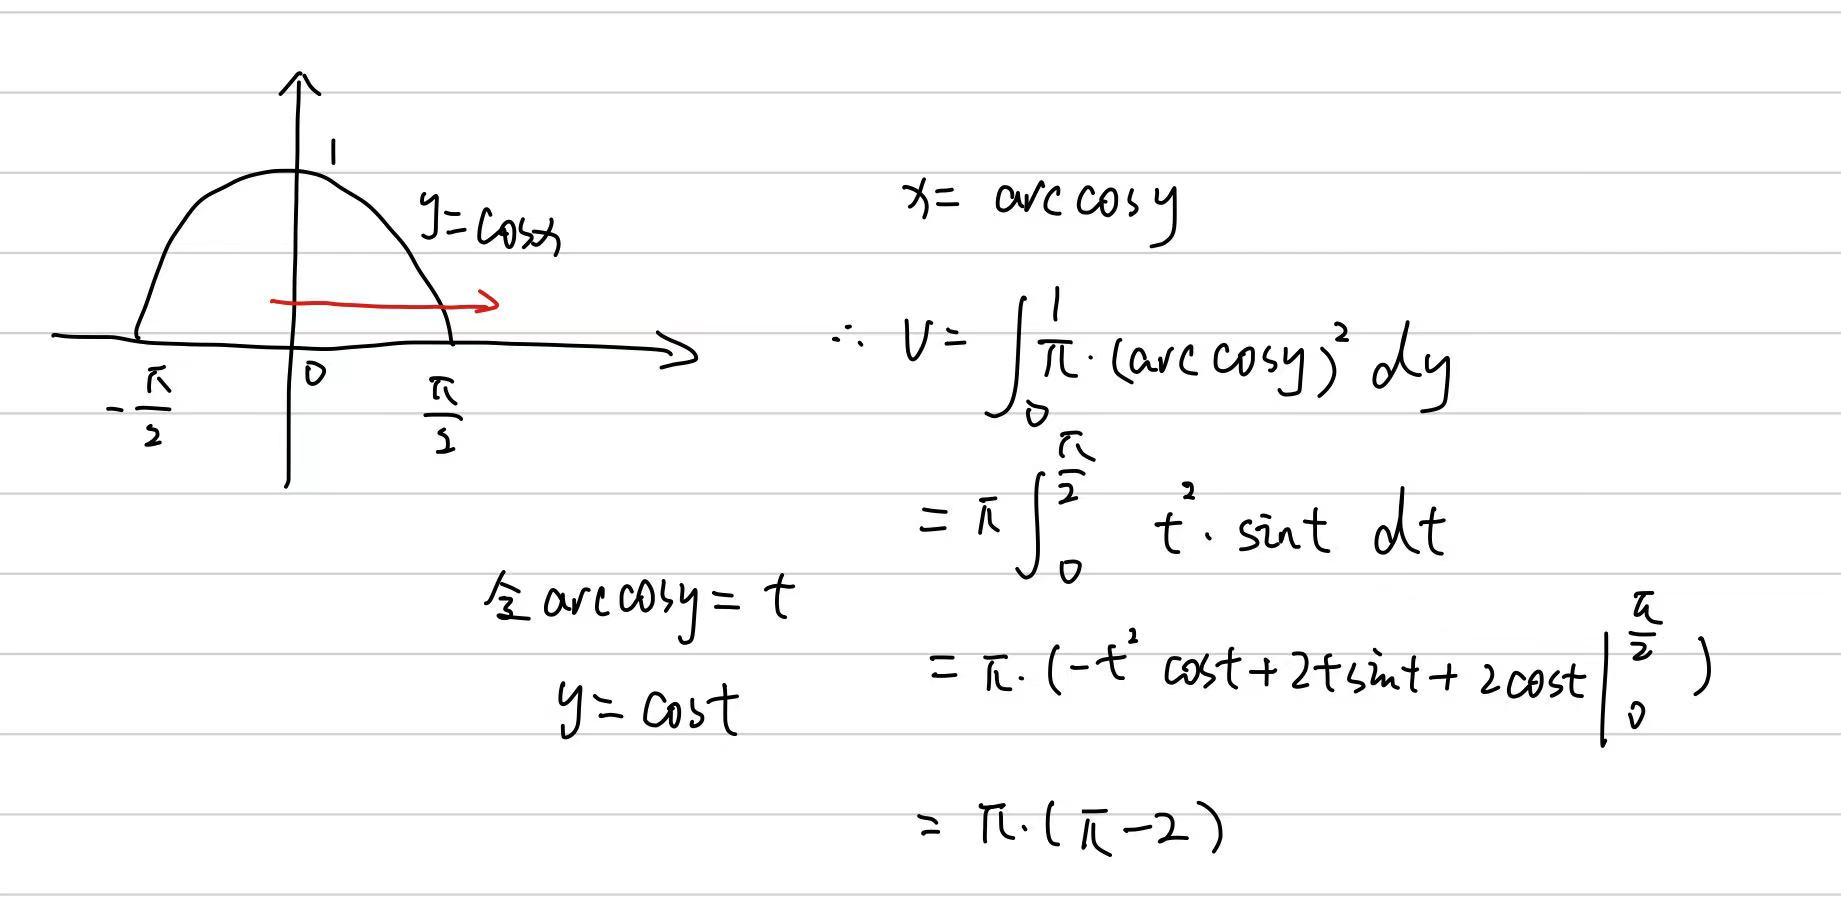 1
y=cosx
-π/2
0
π/2
x= arccosy
∴ V= ∫₀¹ π·(arccosy)² dy
= π ∫₀^(π/2) t²·sint dt
令arccosy= t
y= cost
= π·(-t² cost+2tsint+2cost |₀^(π/2) )
= π·(π-2)